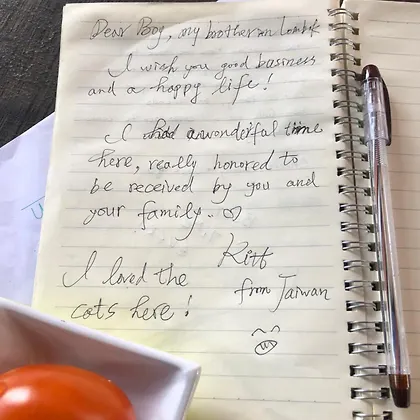 Dear Boy, my brother in Lombok
I wish you good business
and a happy life!
I had a wonderful time
here, really honored to
be received by you and
your family.
Kitt
from Taiwan
I loved the
cats here!